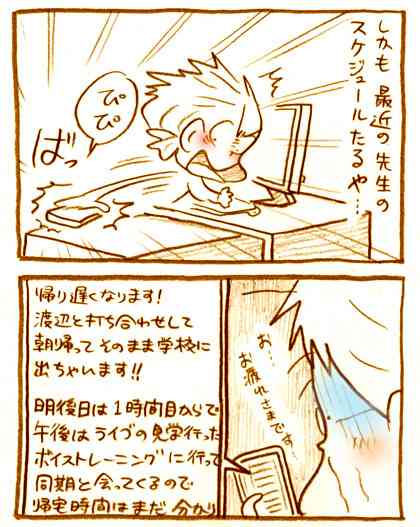 しかも 最近の 先生の
スケジュールたるや…
ぴぴぴ
ばっ
お…
お疲れさまです…
帰り遅くなります!
渡辺と打ち合わせして
朝帰ってそのまま学校に
出ちゃいます!!
明後日は1時間目からで
午後はライヴの見学行った
ボイストレーニングに行って
同期と会ってくるので
帰宅時間はまだ分かり